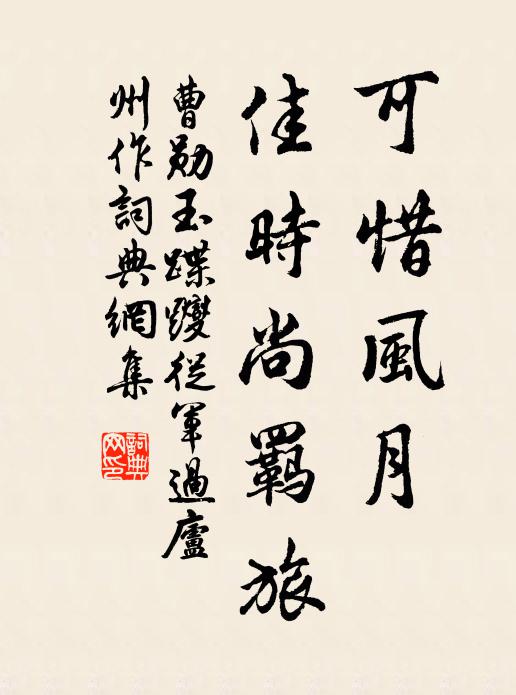 可惜風月
佳時尚羈旅
曹勛玉蹀躞從軍過廬
州作詞典網集
詞典網印